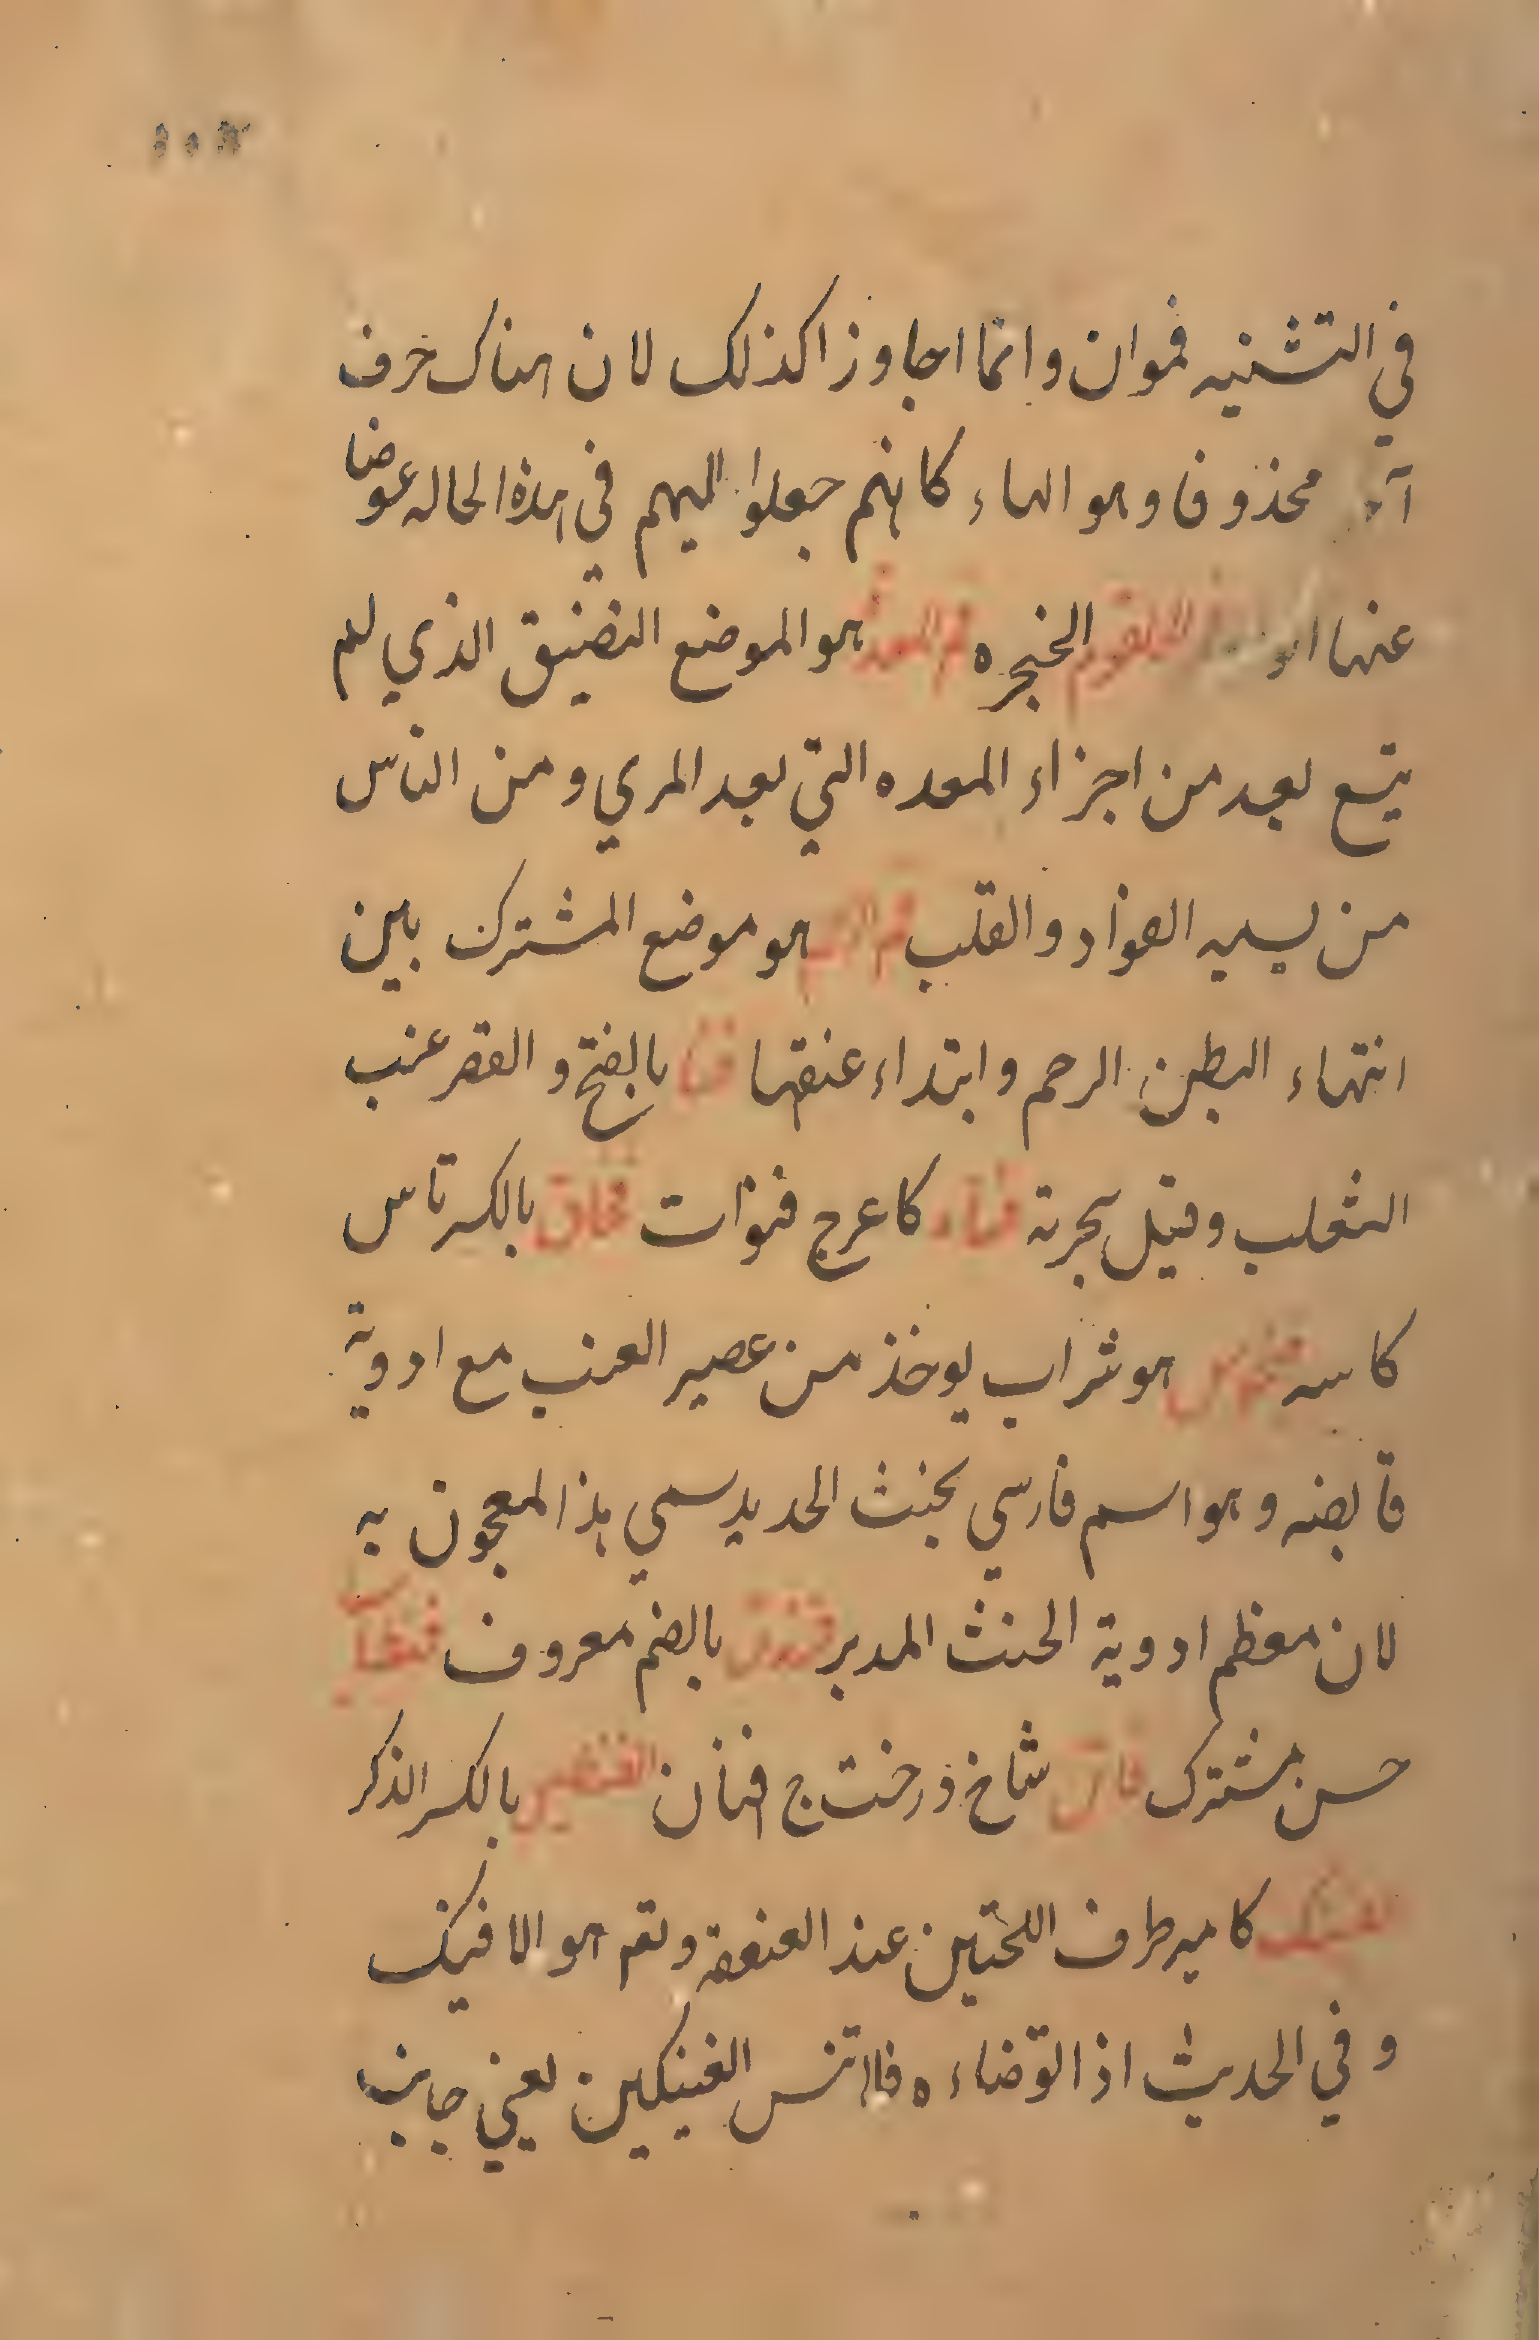 في التشنيه فموان وانما اجاوزا كذلك لان هناك حرف
آخر محذوفا وهو الهاء كانهم جعلوا الميم في هذه الحاله عوضا
عنها الحلقوم الخنجره فم المعده هو الموضع الضيق الذي لم
يتسع بعد من اجزاء المعده التي بعد المري ومن الناس
من يسميه الفواد والقلب فم الرحم هو موضع المشترك بين
انتهاء البطن الرحم وابتداء عنقها فنا بالفتح و القصر عنب
الثعلب وقيل شجرته فناء كاعرج فنوات بالكسر تاس
كاسه هو شراب يوخذ من عصير العنب مع ادوية
قابضه و هو اسم فارسي بخبث الحديد سمي هذا المعجون به
لان معظم ادوية الخبث المدبر فندق بالضم معروف فنطاسيا
حس مشترك شاخ درخت ج افنان بالكسر الذكر
الفنيك كامير طرف اللحيين عند العنفقة وتقم هو الافنيك
و في الحديث اذا توضاء ه فلا تنس الفنيكين يعني جانب